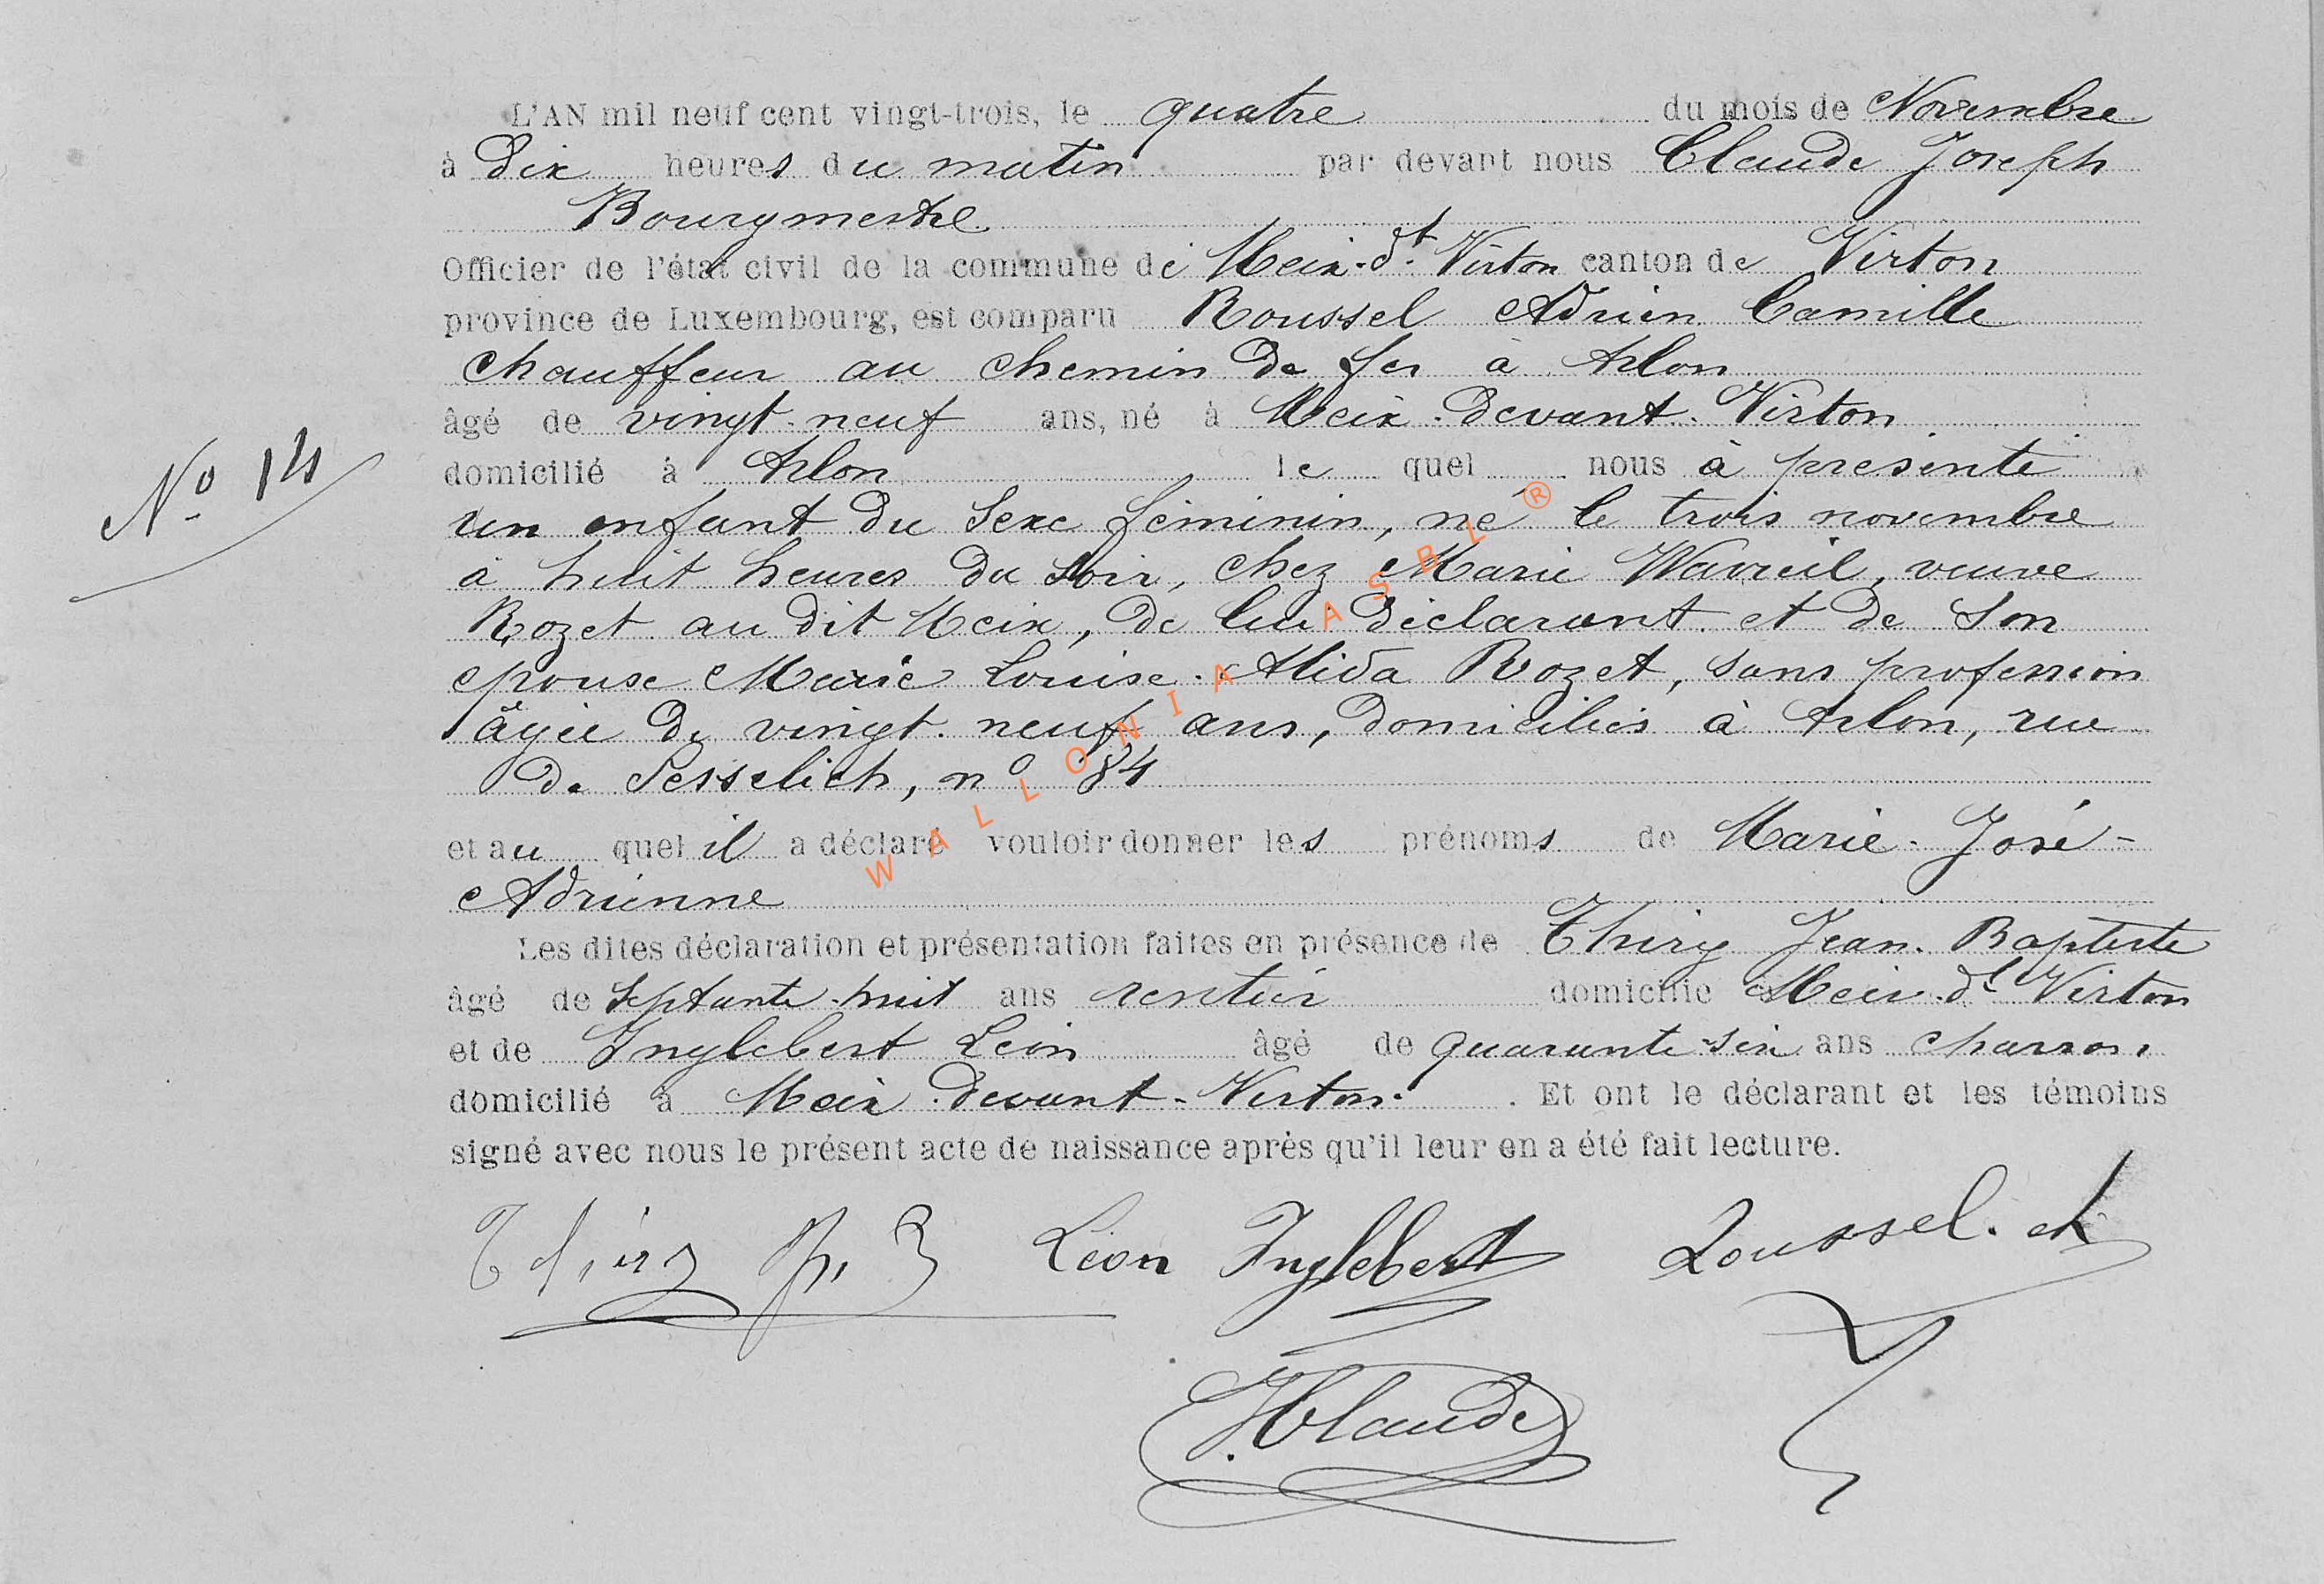 L'AN mil neuf cent vingt-trois, le quatre du mois de Novembre
à dix heures du matin par devant nous Claude Joseph
Bourgmestre
Officier de l'état civil de la commune de Meix-dt Virton canton de Virton
province de Luxembourg, est comparu Roussel Adrien Camille
chauffeur au chemin de fer à Arlon
âgé de vingt-neuf ans, né à Meix-devant-Virton
domicilié à Arlon le quel nous à présenté
Nº 14
un enfant du sexe féminin, né le trois novembre
à huit heures du soir, chez Marie Wavreil, veuve
Rozet au dit Meix, de lui déclarant et de son
épouse Marie Louise Alida Rozet, sans profession
âgée de vingt-neuf ans, domiciliés à Arlon, rue
de Sesselich, nº 84
et au quel il a déclaré vouloir donner les prénoms de Marie-José-
Adrienne
Les dites déclaration et présentation faites en présence de Thiry Jean-Baptiste
âgé de septante-huit ans rentier domicilié à Meix-dt Virton
et de Inglebert Léon âgé de quarante-six ans charron,
domicilié à Meix-devant-Virton. Et ont le déclarant et les témoins
signé avec nous le présent acte de naissance après qu'il leur en a été fait lecture.
Thiry J, B Léon Inglebert Roussel. A
J Claude
WALLONIA ASBL ®